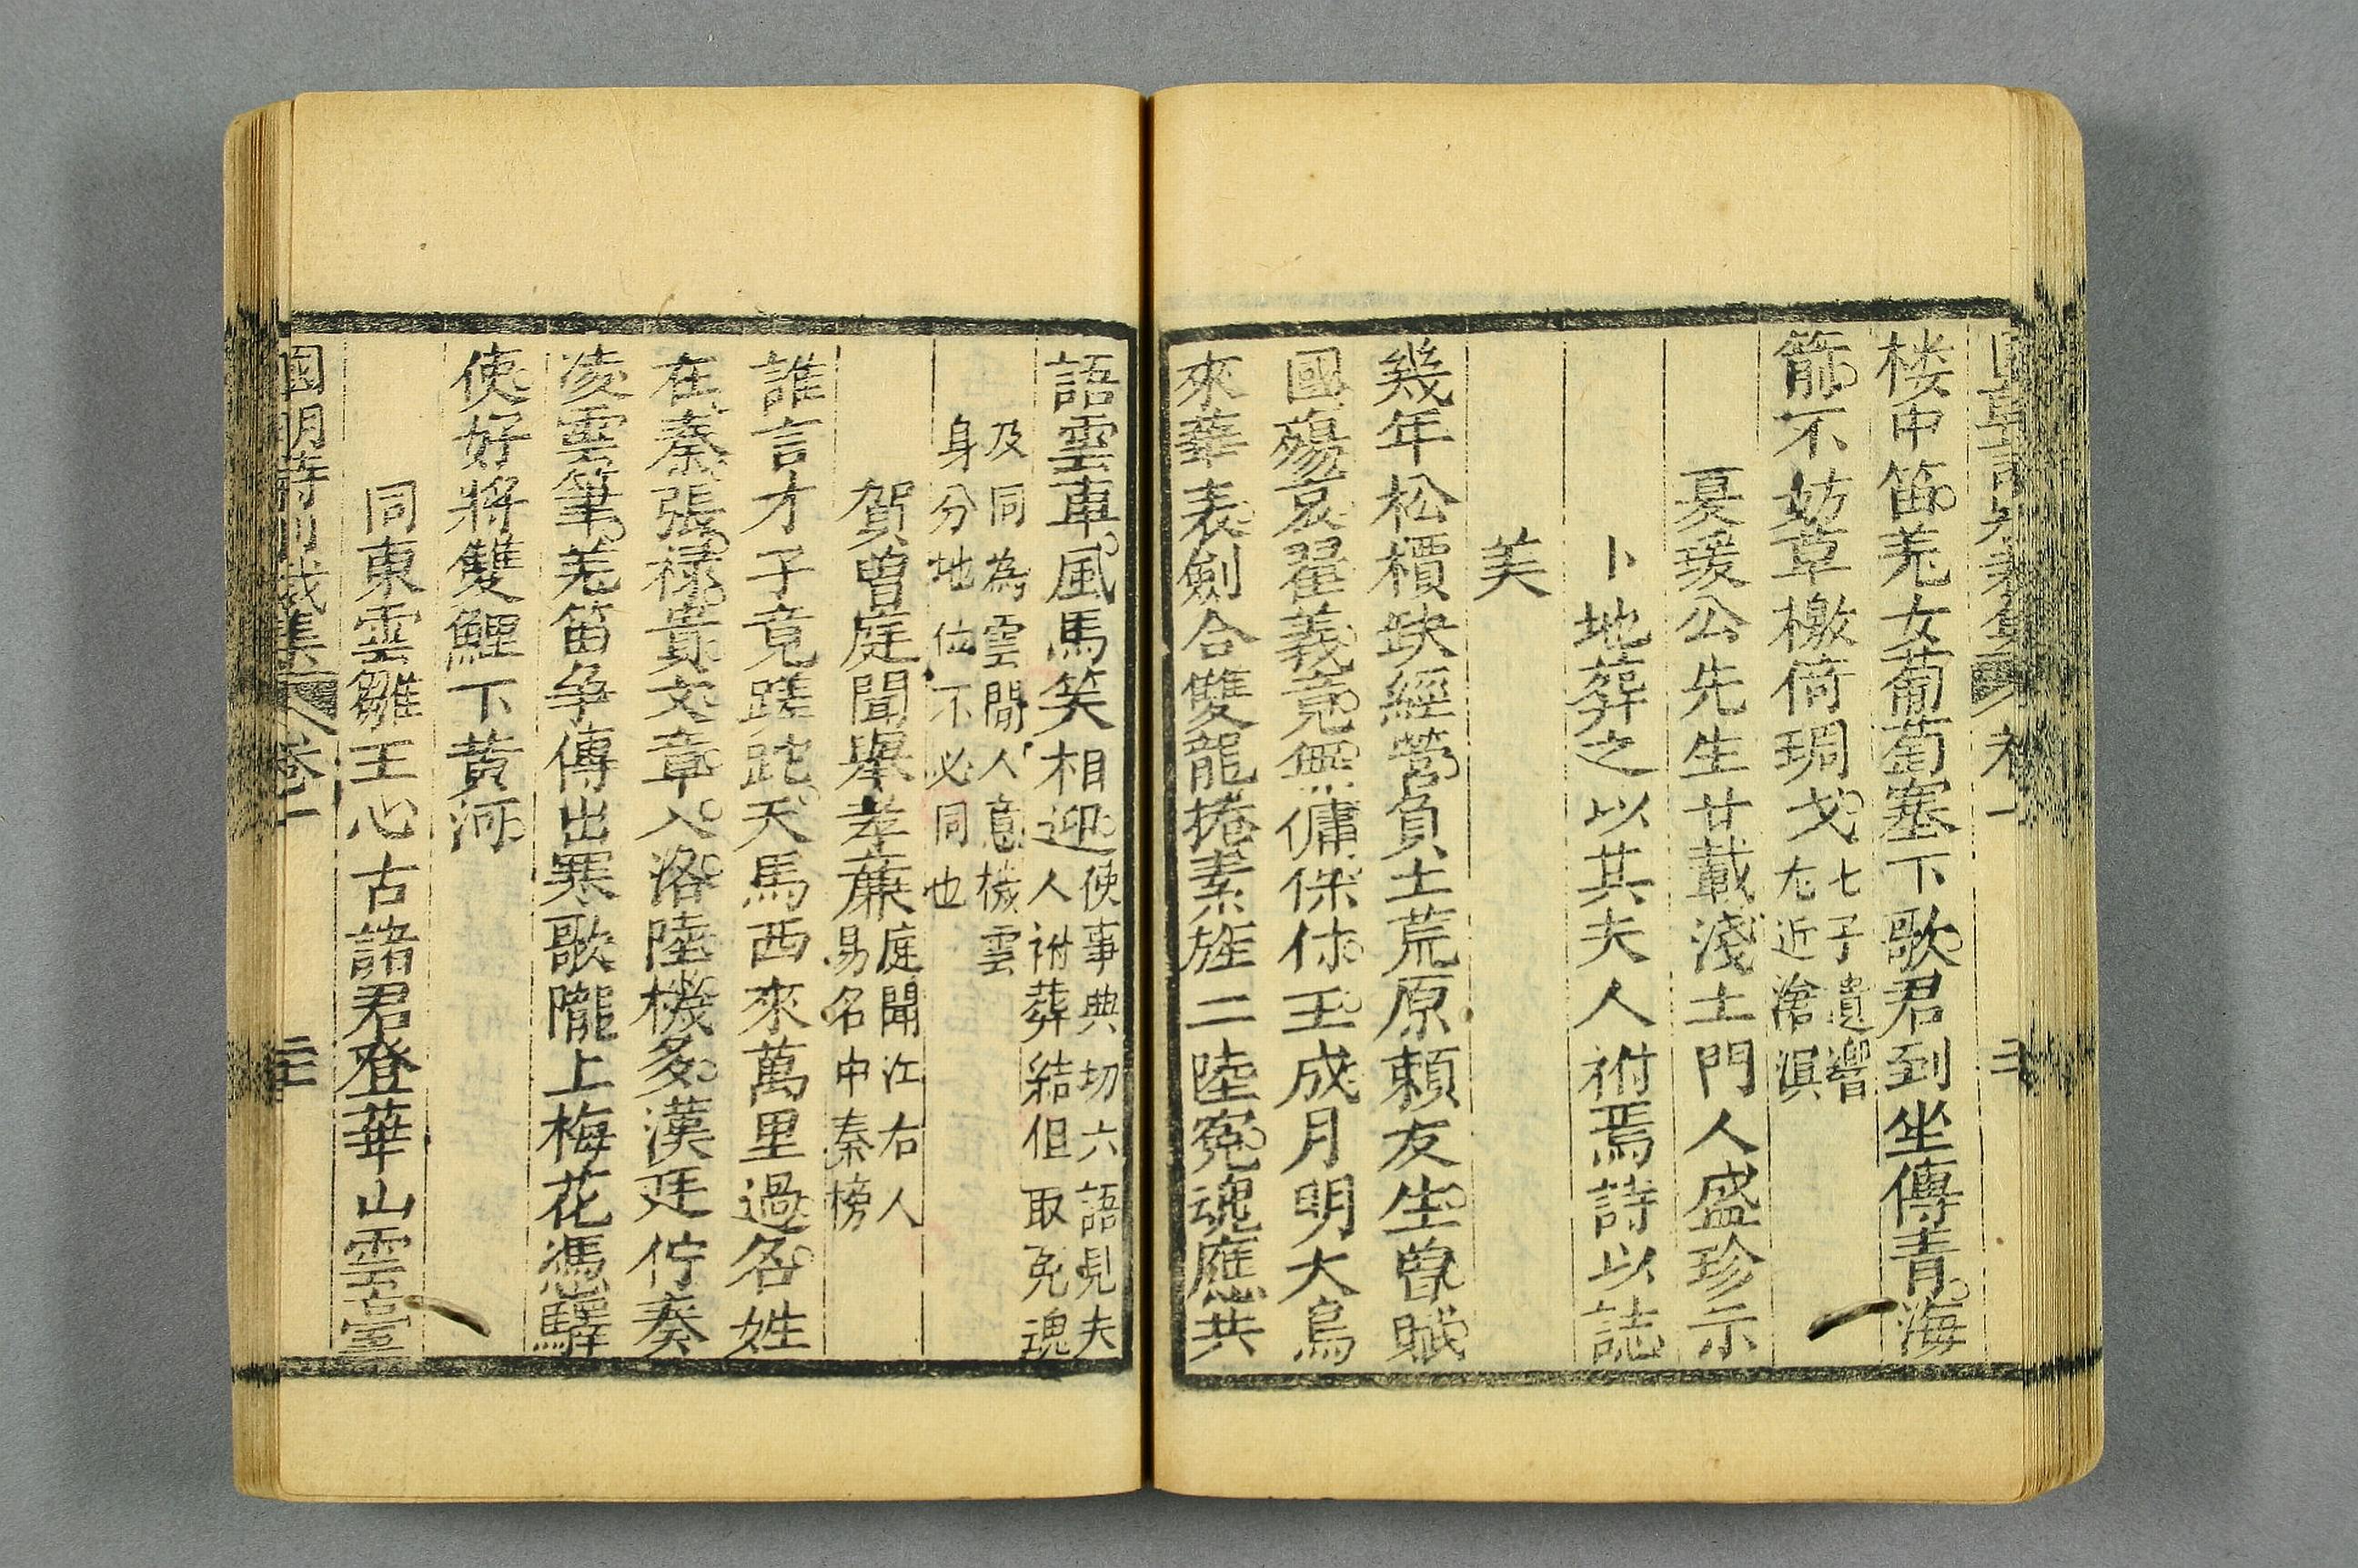 楼中笛羌女葡萄塞下歌君到坐傳青海
箭不妨草檄倚琱戈七子遺響尤近滄溟
夏瑗公先生廿載淺土門人盛珍示
卜地葬之以其夫人祔焉詩以誌
美
幾年松檟缺經營負土荒原賴友生曾賦
國殤哀翟義竟無傭保付王成月明大鳥
來華表劍合雙龍捲素旌二陸冤魂應共
語雲車風馬笑相迎使事典切六語見夫人祔葬結但取冤魂
及同為雲間人意機雲身分地位不必同也
賀曾庭聞舉孝亷庭聞江右人易名中秦榜
誰言才子竟蹉跎天馬西來萬里過名姓
在秦張禄貴文章入洛陸機多漢廷佇奏
凌雲筆羌笛争傳出寒歌隴上梅花憑驛
使好將雙鯉下黄河
同東雲雛王心古諸君登華山雲臺
國朝詩別裁集 卷二 三二